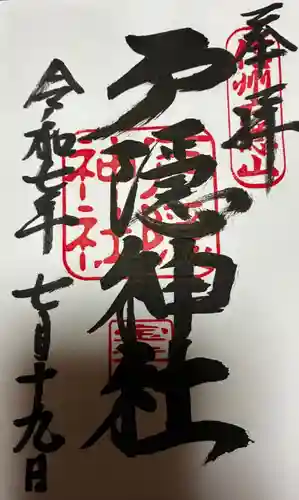 奉拝
信州戸隠山
戸隠神社
戸隠神社
令和七年七月十九日